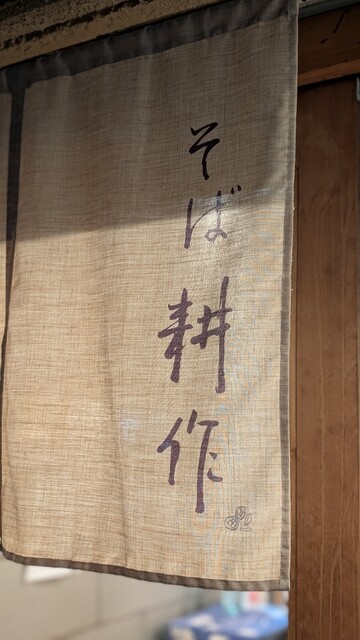 そば 耕作